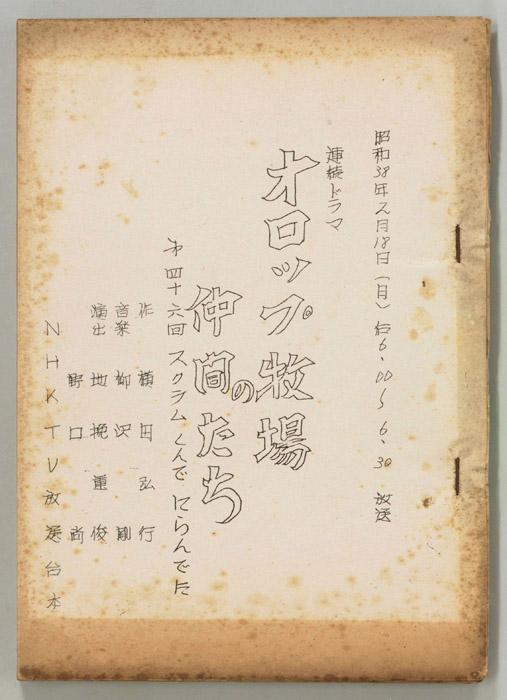 昭和38年8月18日(日)后6.00〜6.30 放送
連続ドラマ
オロップ牧場の
仲間たち
第四十六回 スクラムくんで にらんでた
作 横田弘行
音楽 柳沢剛
演出 地挽重俊
野口尚
NHKTV放送台本